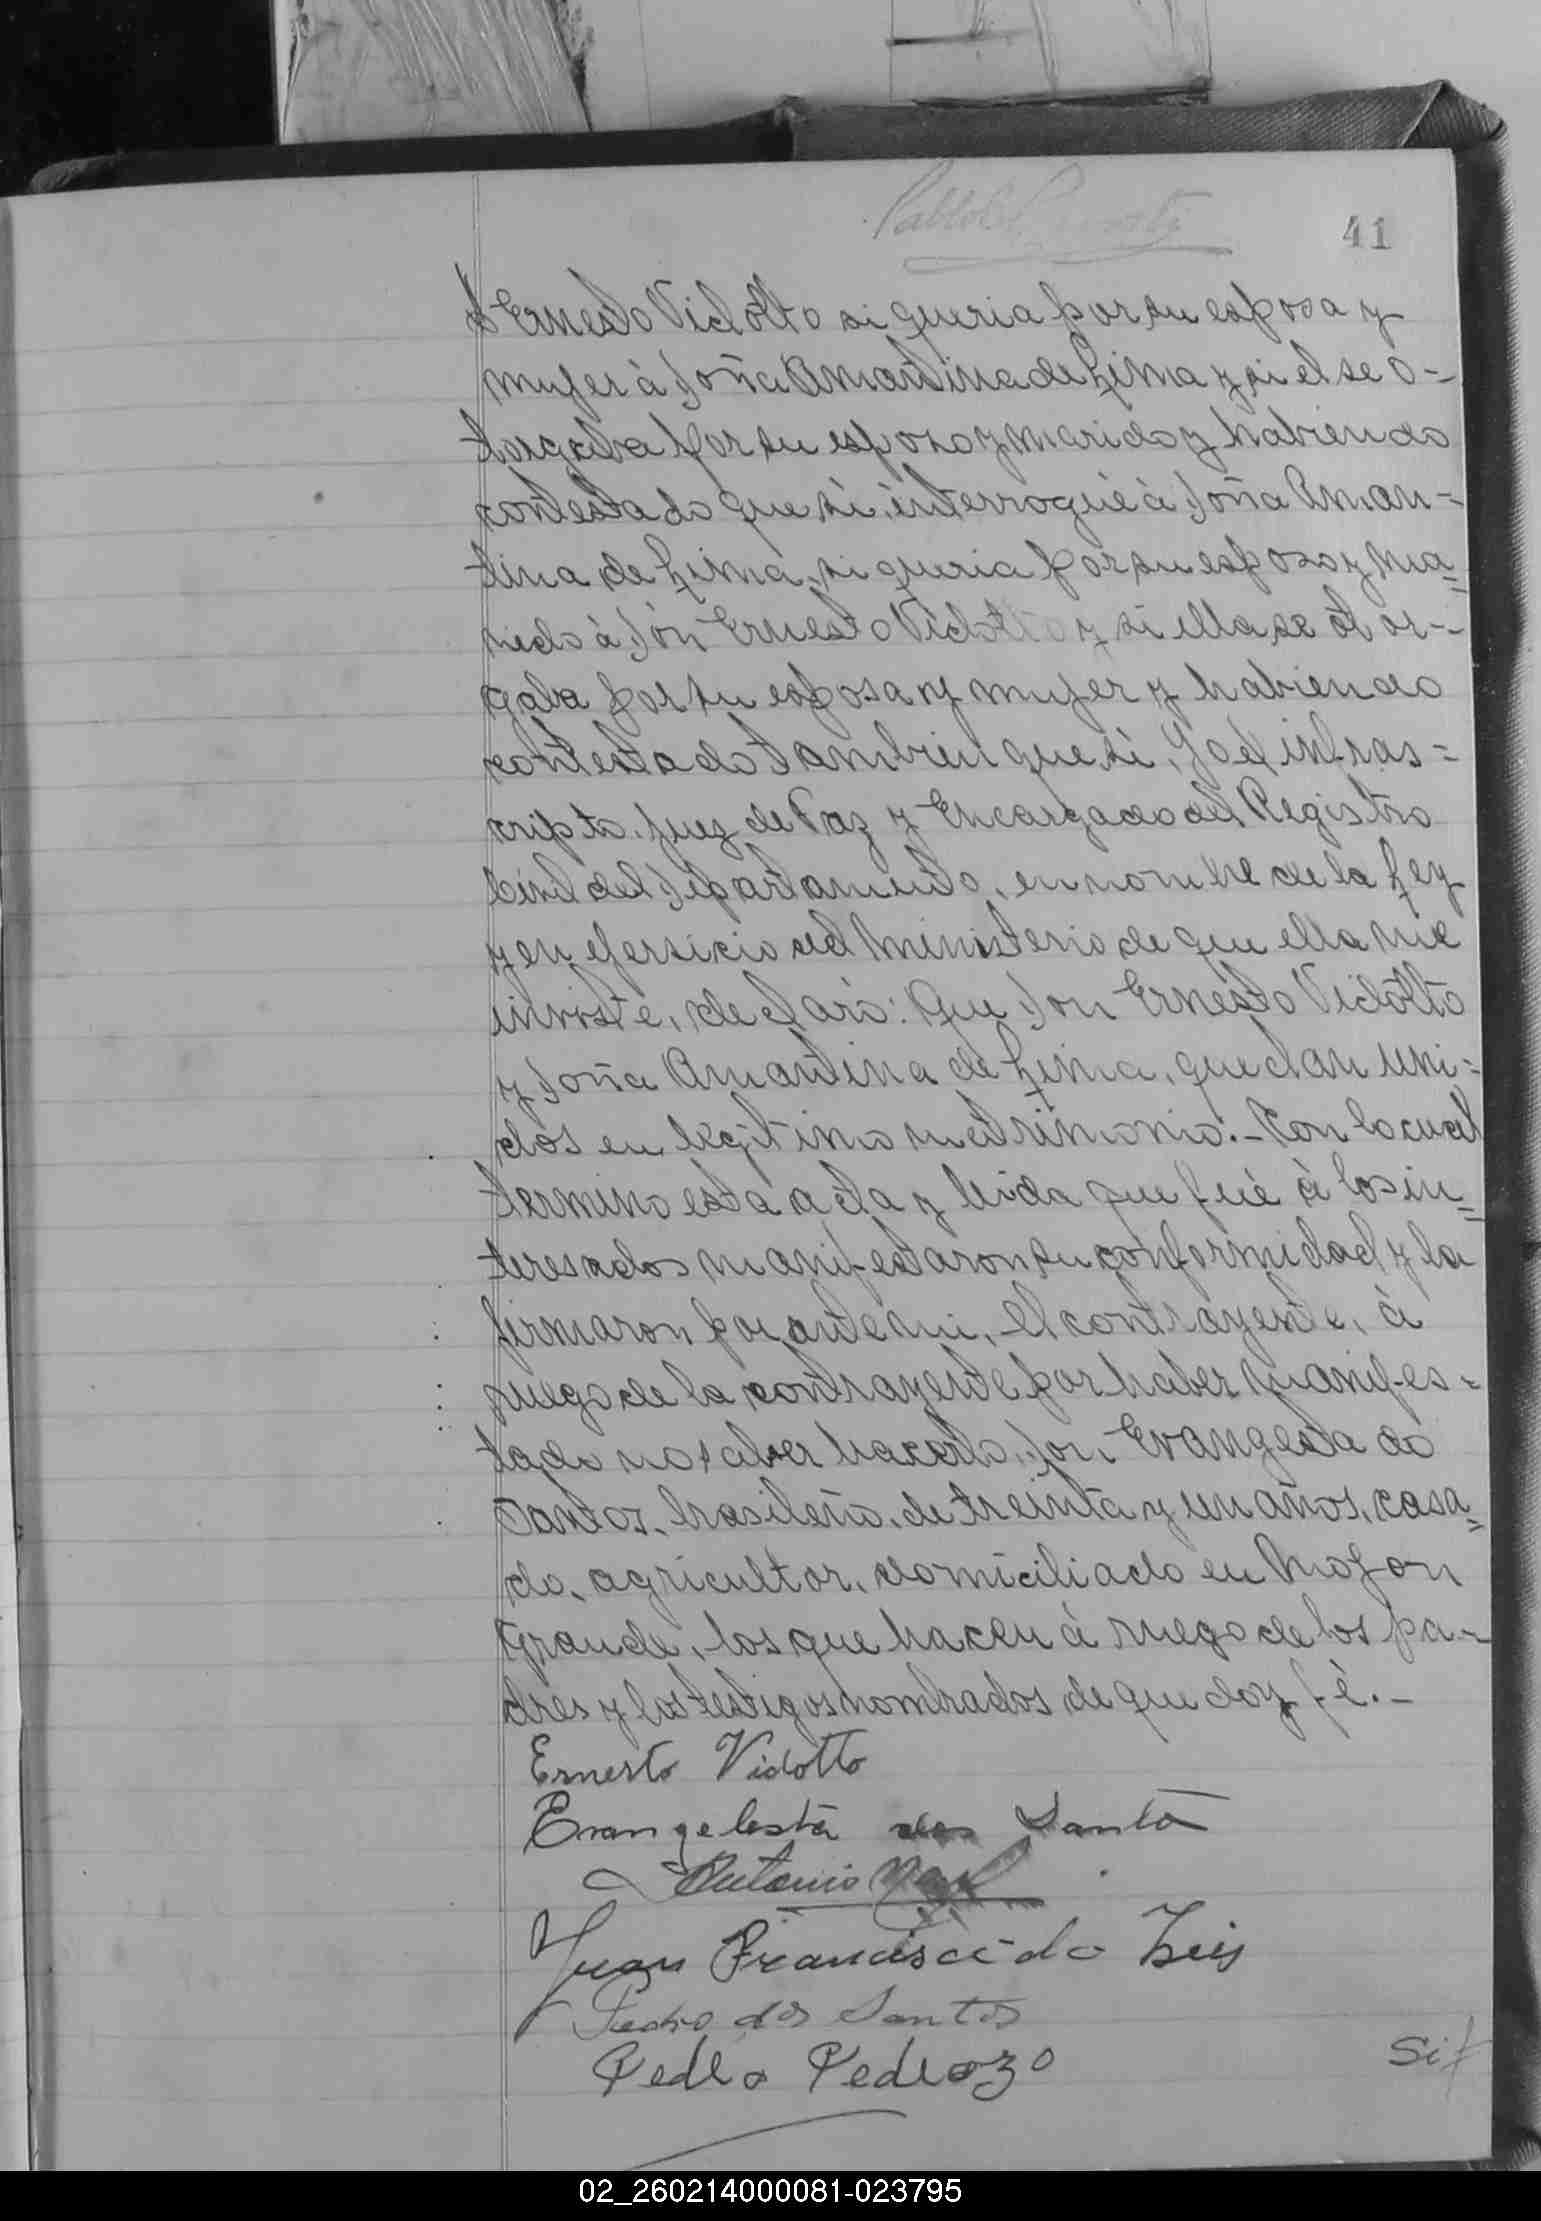 41
Ernesto Vidotto si queria por su esposa y
mujer à Doña Amantina de Lima y si el se o-
torgaba por su esposo y marido y habiendo
contestado que si, interrogué à Doña Aman-
tina de Lima, si queria por su esposo y ma-
rido à Don Ernesto Vidotto y si ella se otor-
gaba por su esposa y mujer y habiendo
contestado tambien que si, Yo el infras-
cripto. Juez de Paz y Encargado del Registro
Civil del Departamento, en nombre de la Ley
y en ejersicio del Ministerio de que ella me
inviste, declaro: Que Don Ernesto Vidotto
y Doña Amantina de Lima, quedan uni-
dos en legitimo matrimonio.- Con lo cual
termino esta acta y leida que fué à los in-
teresados manifestaron su conformidad y la
firmaron por ante mi, el contrayente, à
ruego de la contrayente por haber manifes-
tado no saber hacerlo, Don Evangesta do
Santos, brasileño, de treinta y un años, casa-
do, agricultor, domiciliado en Mojon
Grande, los que hacen à ruego de los pa-
dres y los testigos nombrados de que doy fé.-
Ernesto Vidotto
Evangelesta dos Santo
Antonio
Juan Francisco do
Pedro dos Santos
Pedro Pedrozo
02_260214000081-023795